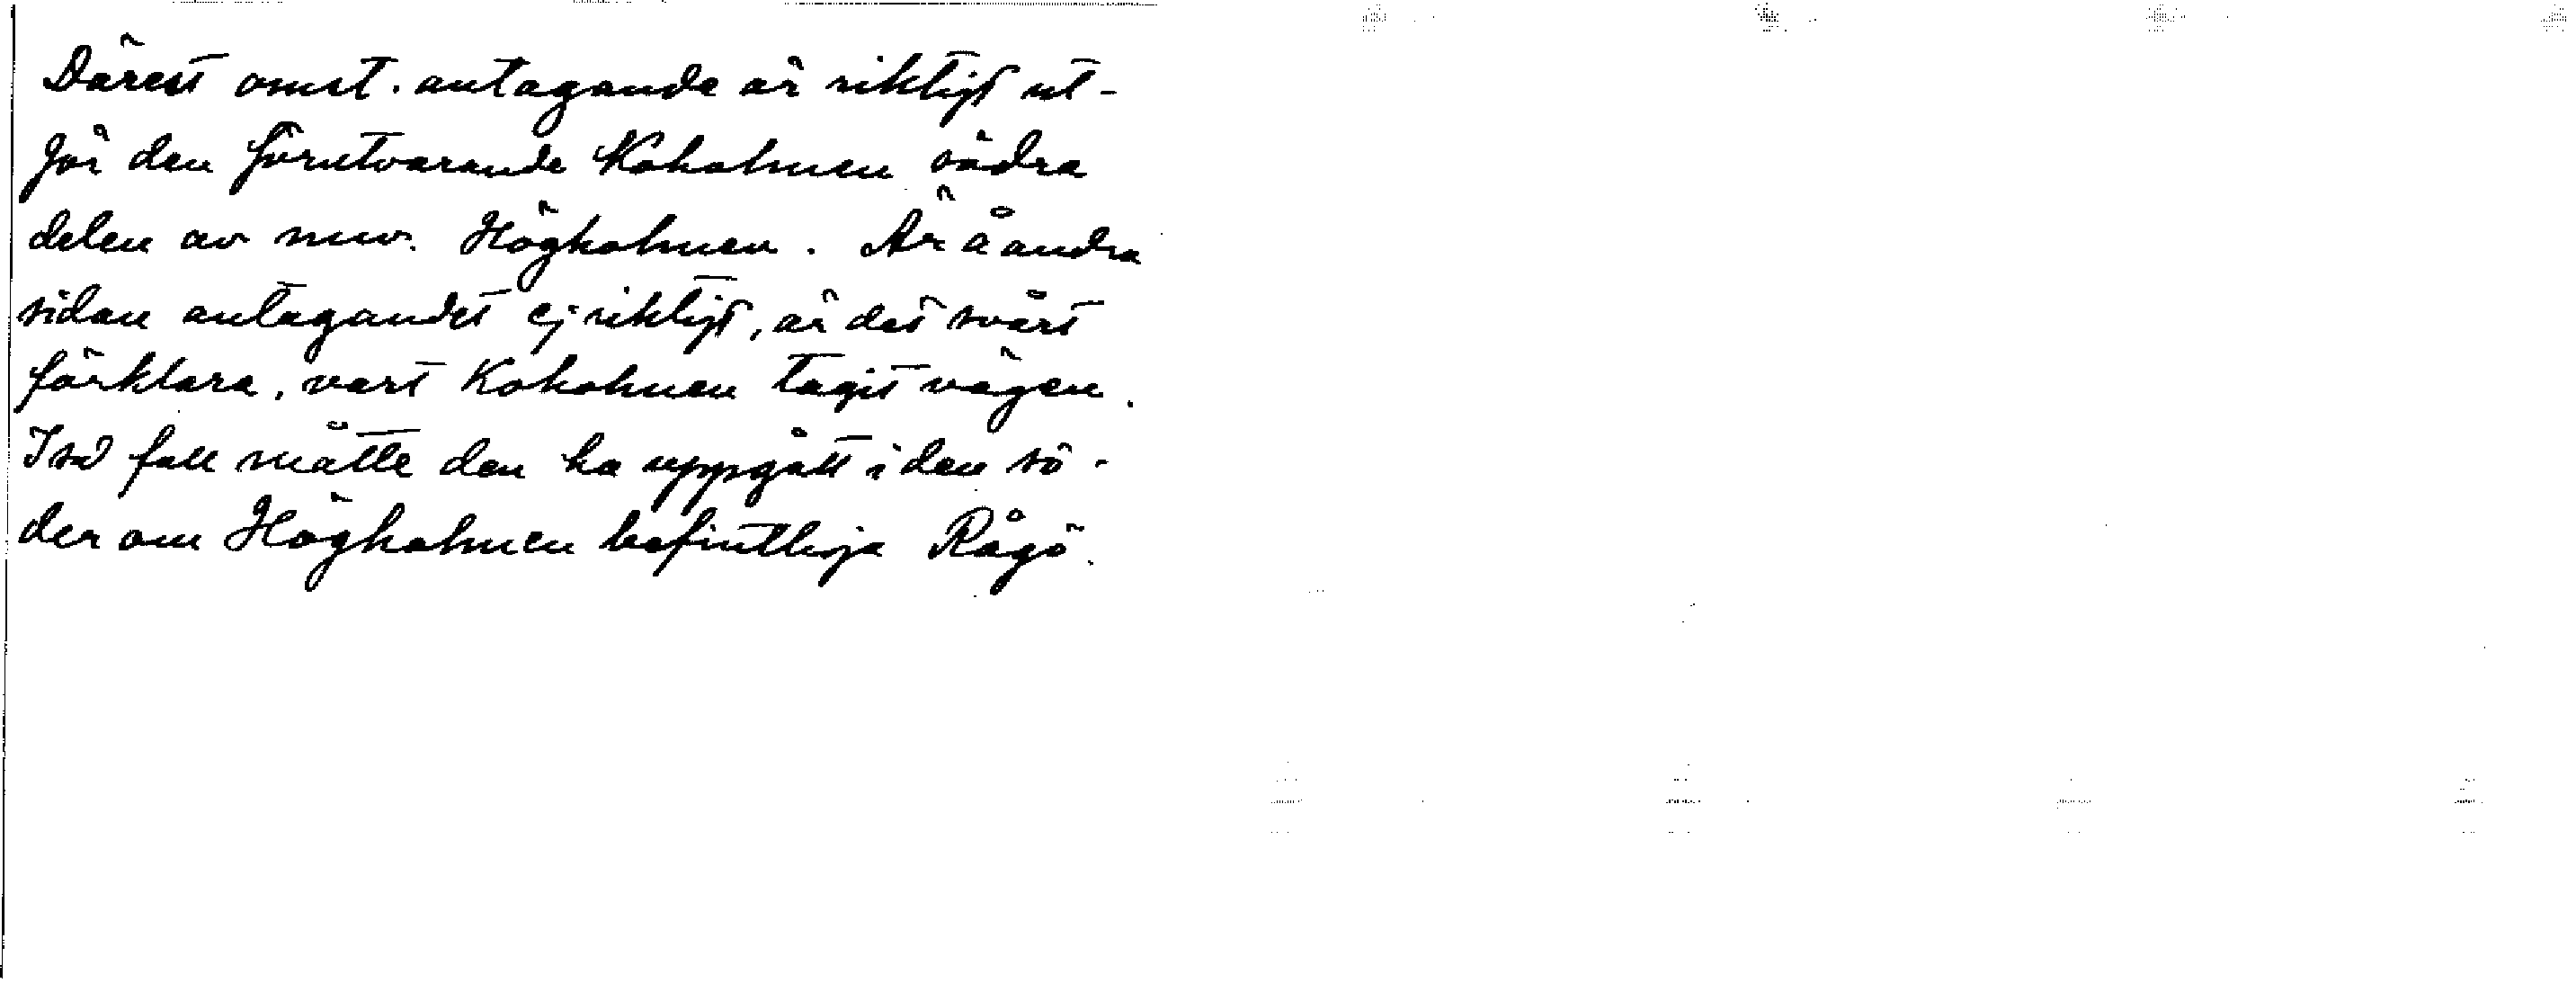 Därest omst. antagande är riktigt ut-
gör den förutvarande Koholmen södra
delen av nuv. Högholmen. Är å andra
sidan antagandet ej riktigt, är det svårt
förklara, vart Koholmen tagit vägen.
I så fall måtte den ha uppgått i den sö-
der om Högholmen befintliga Rågö.